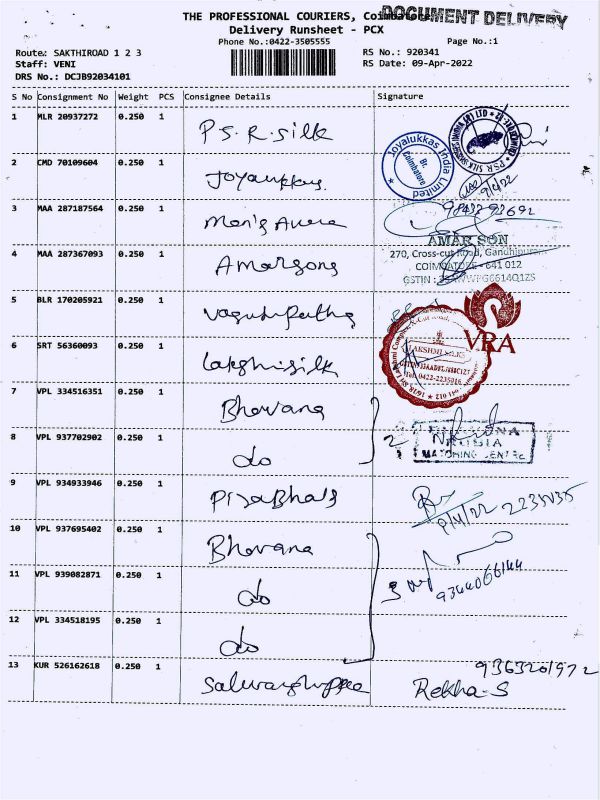 THE PROFESSIONAL COURIERS, Coimbatore
DOCUMENT DELIVERY
Delivery Runsheet - PCX
Phone No.:0422-3505555
Page No.:1
Route: SAKTHIROAD 1 2 3
RS No.: 920341
Staff: VENI
RS Date: 09-Apr-2022
DRS No.: DCJB92034101
S No Consignment No Weight PCS Consignee Details Signature
1 MLR 20937272 0.250 1 P.S.R.Silk
Joyalukkas India Limited
Br. Coimbatore
2 CMD 70109604 0.250 1 Joyalukkas
9/4/22
3 MAA 287187564 0.250 1 Men's Avenue
98432 92692
AMAR SON
4 MAA 287367093 0.250 1 Amarsons
270, Cross-cut Road, Gandhipuram
COIMBATORE - 641 012
GSTIN :
5 BLR 170205921 0.250 1
VRA
6 SRT 56360093 0.250 1 Lakshmi silk
LAKSHMI SILKS
Tel: 0422-2235016
7 VPL 334516351 0.250 1 Bhavana
8 VPL 937702902 0.250 1 do
2
MATCHING CENTRE
9 VPL 934933946 0.250 1
9/4/22
10 VPL 937695402 0.250 1 Bhavana
11 VPL 939082871 0.250 1 do
3
9344066144
12 VPL 334518195 0.250 1 do
13 KUR 526162618 0.250 1
9363201972
Rekha-S